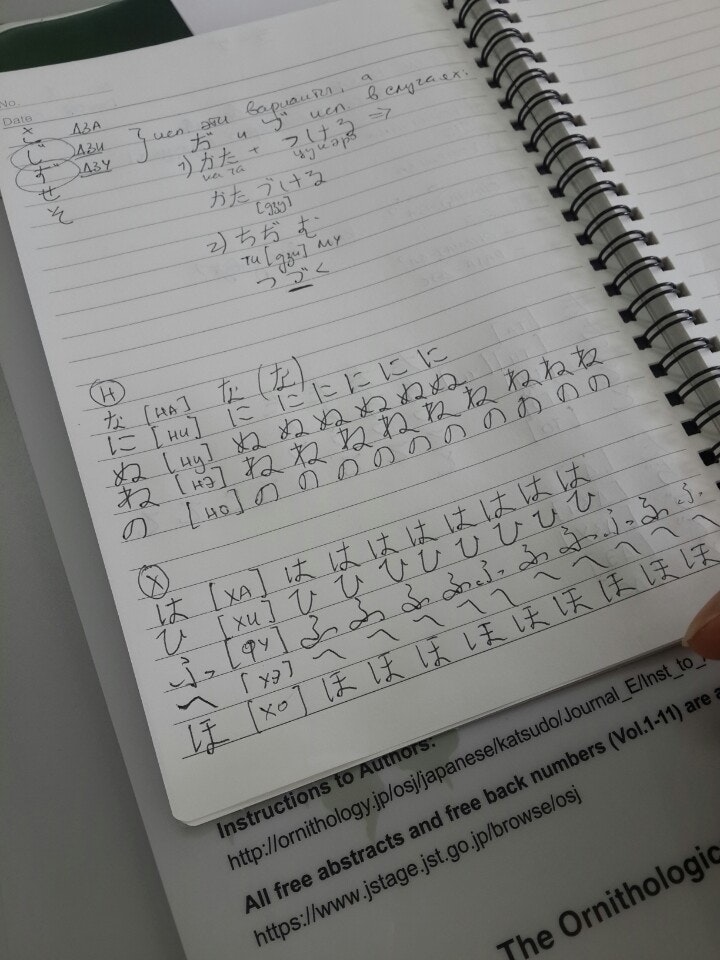 No.
Date
ДЗА
じ ДЗИ } исп. эти варианты, а
ず ДЗУ ぢ и づ исп. в случаях:
せ 1) かた + つける ⇒
そ ката цукэру
かたづける
[дзу]
2) ちぢむ
ти [дзи] му
つづく
Н
な [НА] な (な)
に [НИ] に に に に に に
ぬ [НУ] ぬ ぬ ぬ ぬ ぬ ぬ
ね [НЭ] ね ね ね ね ね ね ね ね ね
の [НО] の の の の の の の の の の
Х
は [ХА] は は は は は は は は
ひ [ХИ] ひ ひ ひ ひ ひ ひ ひ ひ
ふ [ФУ] ふ ふ ふ ふ ふ ふ ふ ふ ふ ふ
へ [ХЭ] へ へ へ へ へ へ へ へ へ
ほ [ХО] ほ ほ ほ ほ ほ ほ ほ ほ ほ
Instructions to Authors:
http://ornithology.jp/osj/japanese/katsudo/Journal_E/Inst_to_
All free abstracts and free back numbers (Vol.1-11) are a
https://www.jstage.jst.go.jp/browse/osj
The Ornithologic